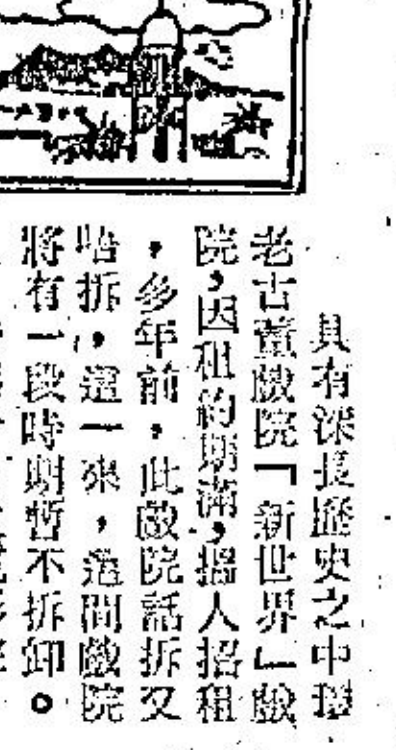 具有深長歷史之中環
老古董戲院「新世界」戲
院，因租約期滿，搵人招租
，多年前，此戲院話拆又
唔拆，這一來，這間戲院
將有一段時期暫不拆卸。